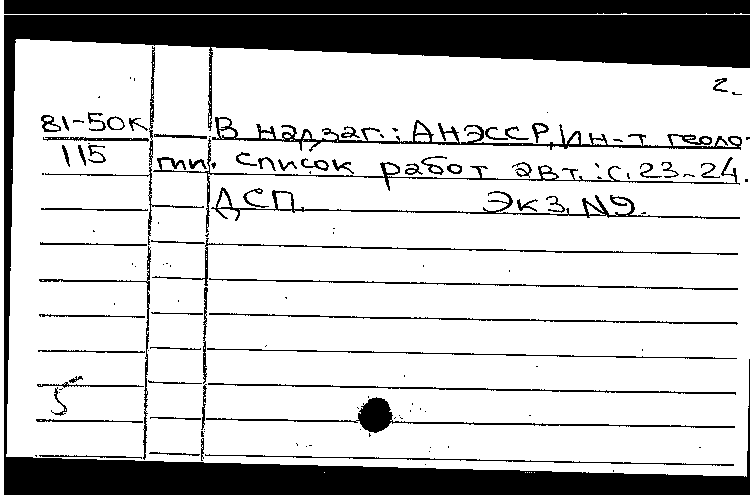 2.
81-50к В надзаг.: АН ЭССР, Ин-т геоло-
115 гии. Список работ авт.: с. 23-24.
ДСП. Экз. N9.
5